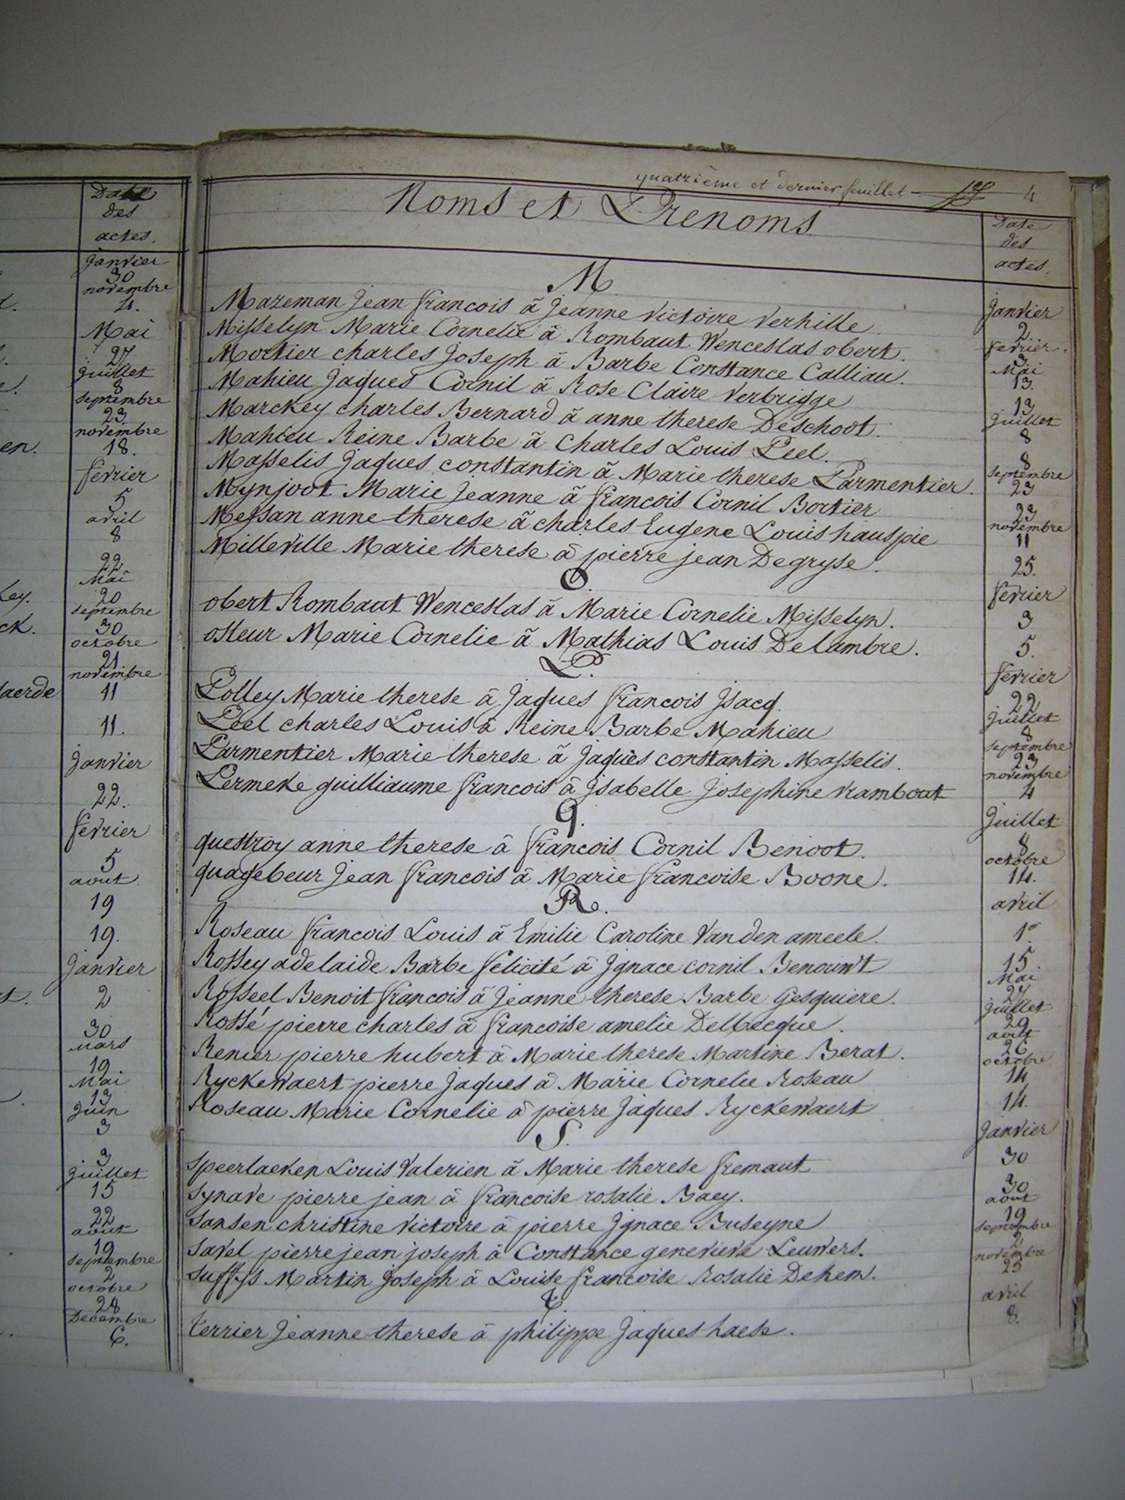 Date
des
actes.
janvier
30
novembre
4.
Mai
27
juillet
8
septembre
23
novembre
18.
fevrier
5
avril
8
22
Mai
20
septembre
30
octobre
21
novembre
11
11.
janvier
22.
fevrier
5
aout
19
19.
janvier
2
30
mars
19
Mai
13
juin
3
3
juillet
15
22
aout
19
septembre
2
octobre
28
Decembre
6.
en.
ley.
ck.
aerde
quatrième et dernier feuillet 4
Noms et Prenoms
Date
des
actes.
M.
Mazeman jean francois à jeanne victoire verhille. janvier 2
Misselyn Marie Cornelie à Rombaut Wenceslas obert. fevrier 3
Mortier charles joseph à Barbe Constance Calliau. Mai 13.
Mahieu jaques Cornil à Rose Claire verbrigge 13
Marckey charles Bernard à anne therese Deschoot. juillet 8
Mahieu Reine Barbe à Charles Louis Peel. 8
Masselis jaques constantin à Marie therese Parmentier. septembre 23
Mynjoot Marie jeanne à francois Cornil Bortier 23
Messan anne therese à charles Eugene Louis hauspie novembre 11
Milleville Marie therese à pierre jean Degryse. 25.
O.
obert Rombaut Wenceslas à Marie Cornelie Misselyn. fevrier 3
osteur Marie Cornelie à Mathias Louis Delambre. 5.
P.
Polley Marie therese à jaques francois jsacq. fevrier 22
Peel charles Louis à Reine Barbe Mahieu juillet 8
Parmentier Marie therese à jaques constantin Masselis. septembre 23
Permeke guilliaume francois à jsabelle josephine vrambout novembre 4
q.
questroy anne therese à francois Cornil Benoot. juillet 8
quagebeur jean francois à Marie francoise Boone. octobre 14.
R.
Roseau francois Louis à Emilie Caroline Van den ameele. avril 1er
Rossey adelaide Barbe felicité à jgnace cornil Benount 15
Rosseel Benoit francois à jeanne therese Barbe Gesquiere. Mai 27
Rossé pierre charles à francoise amelie Delbecque. juillet 29
Renier pierre hubert à Marie therese Martine Berat. août 26
Ryckewaert pierre jaques à Marie Cornelie Roseau octobre 14
Roseau Marie Cornelie à pierre jaques Ryckewaert 14.
S.
speerlaeken Louis Valerien à Marie therese fremaut janvier 30
synave pierre jean à francoise rosalie Baey. 30
sansen christine victoire à pierre jgnace Buseyne aout 19
savel pierre jean joseph à Constance genevieve Leuwers. septembre 2
suffys Martin joseph à Louise francoise Rosalie Dehem. novembre 25
t
terrier jeanne therese à philippe jaques haese. avril 8.